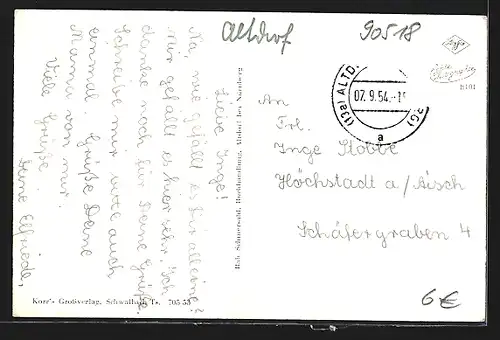 Altdorf
90518
Agfa
B101
(13a) ALTD
07.9.54.-1
RG)
a
Liebe Inge!
Na, wie gefällt es Dir alleine?
Mir gefällt es hier sehr. Ich
danke noch für Deine Grüße.
Schreibe mir bitte auch
einmal. Grüße Deine
Mama von mir.
Viele Grüße
Deine Elfriede.
Buchhandlung, Altdorf bei Nürnberg
An
Frl.
Inge Stobbe
Höchstadt a/Aisch
Schäfergraben 4
Korr's Großverlag, Schwalbach/Ts. 705 53
6€